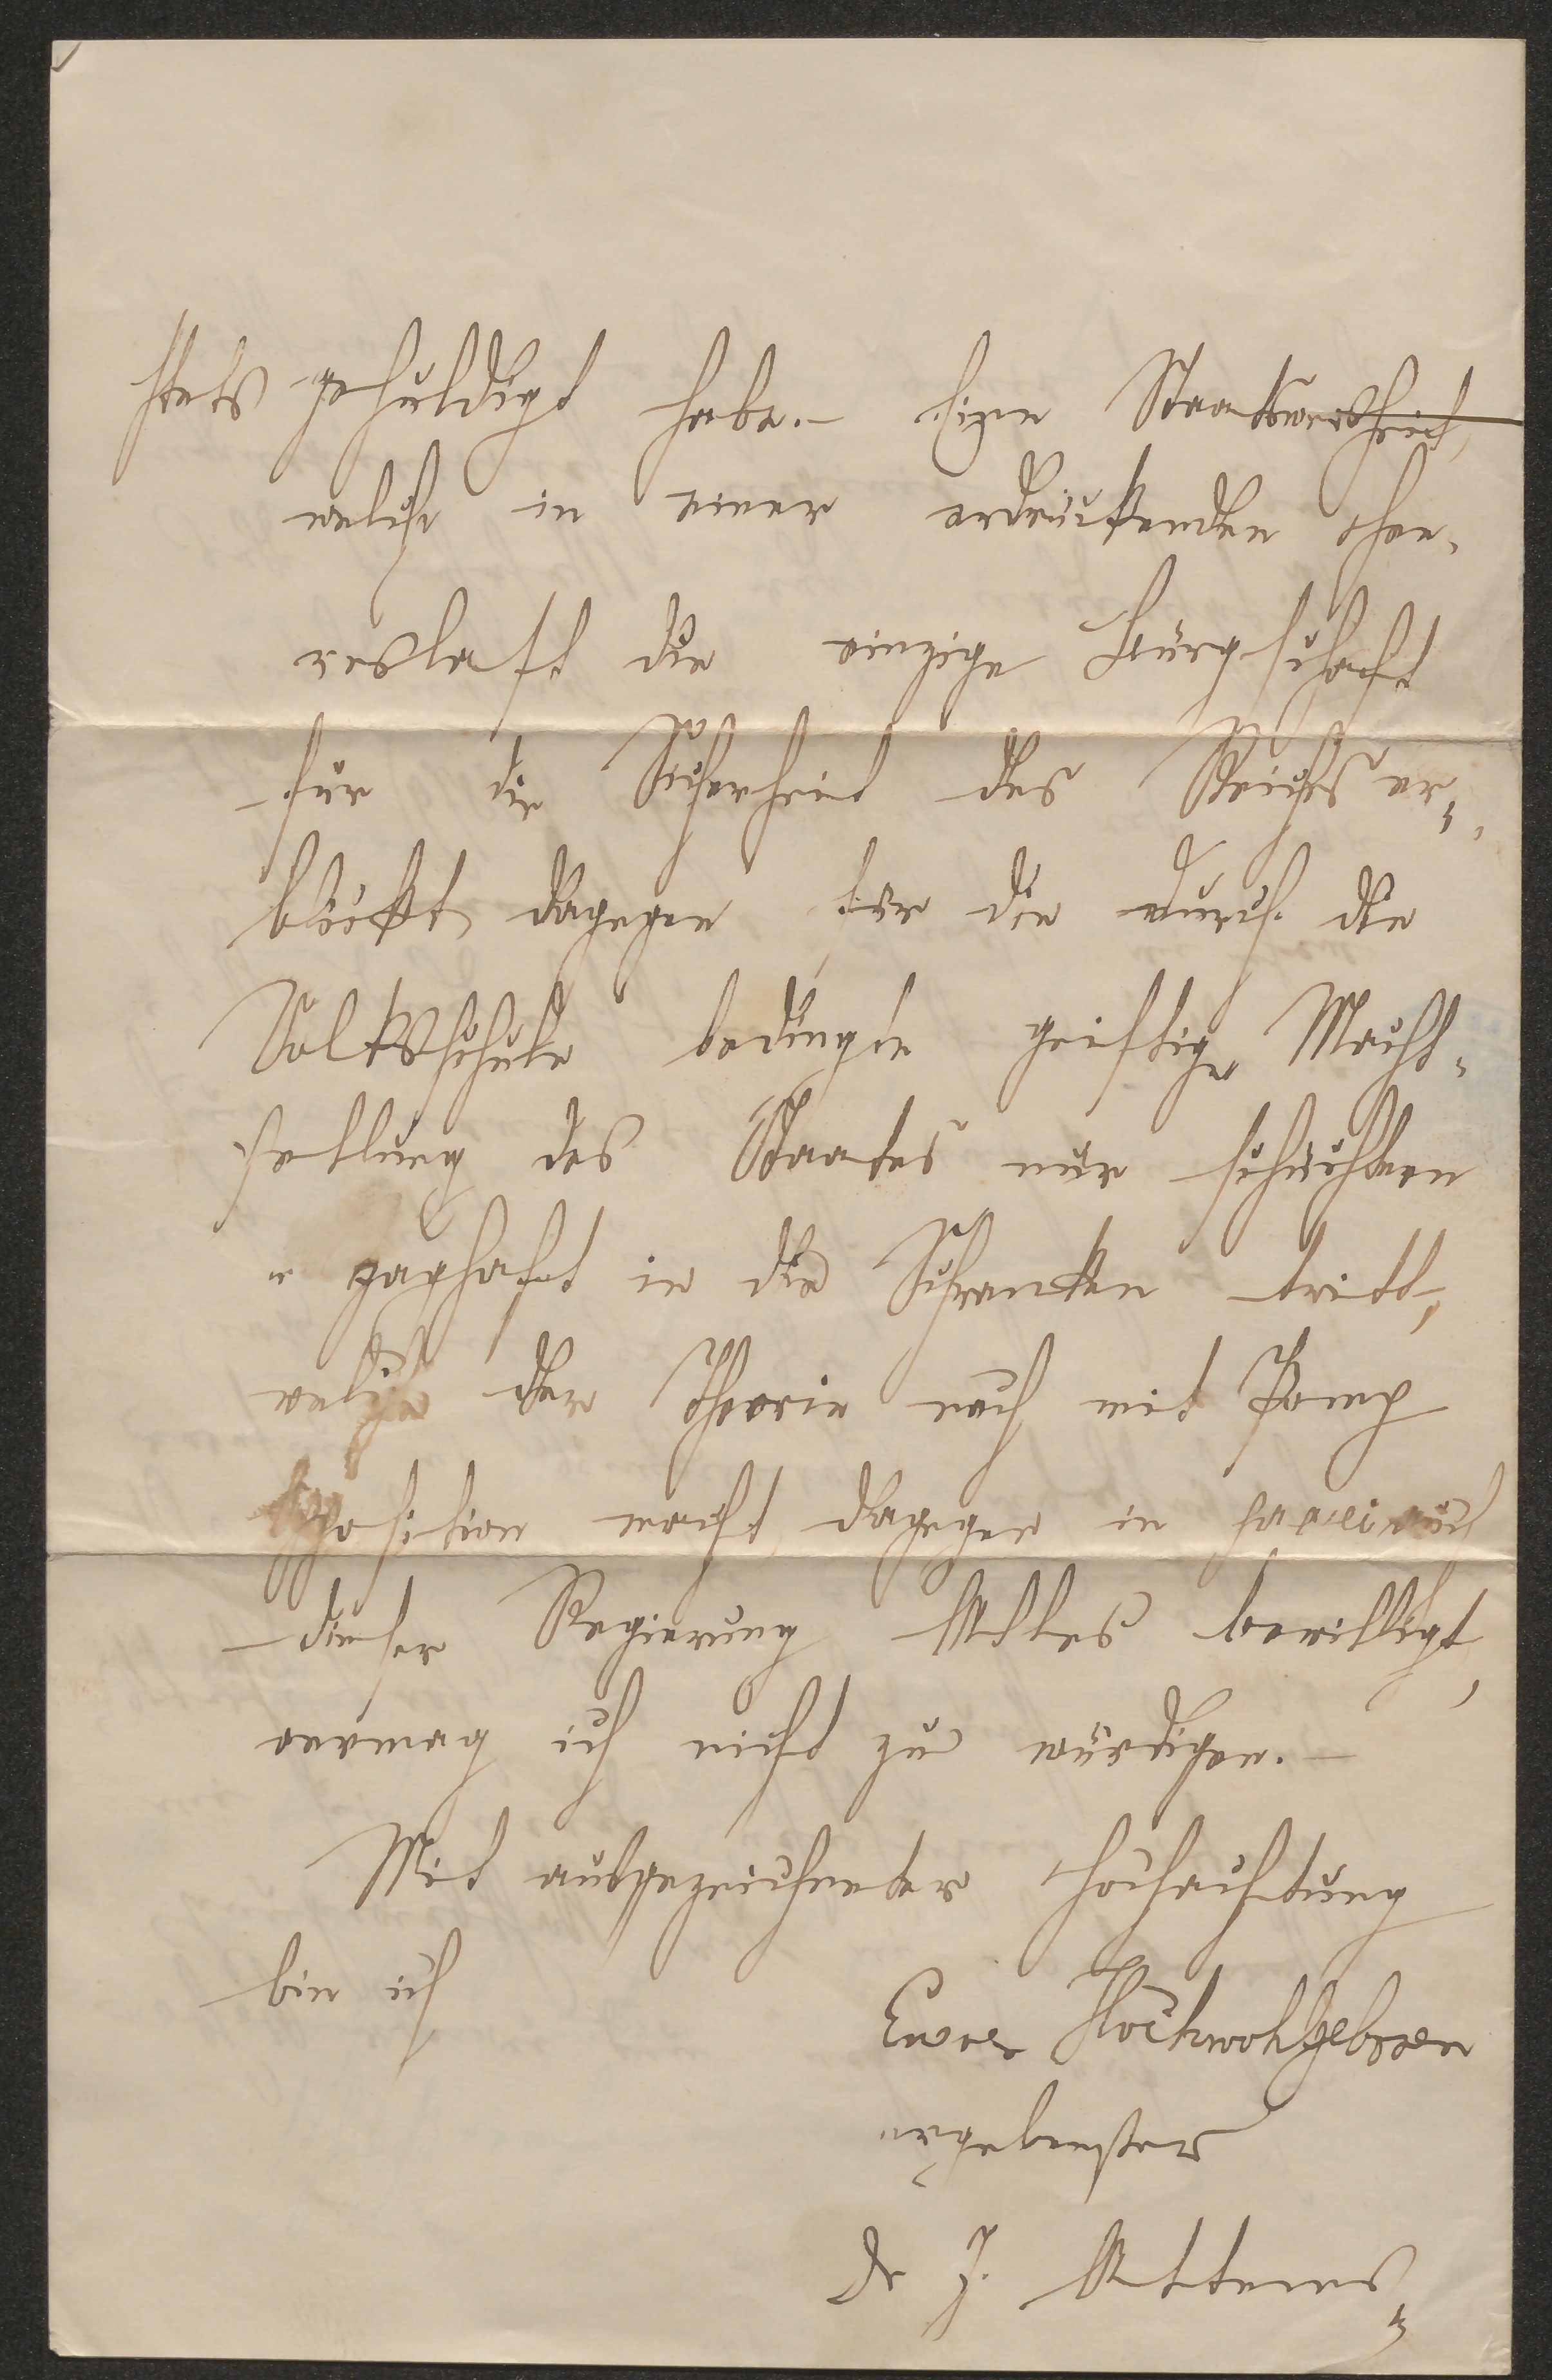 stets gehuldigt habe.– Eine Staatsweisheit,
welche in einer erdrückenden Hee-
reslast die einzige Bürgschaft
für die Sicherheit des Reiches er-
blickt, dagegen für die durch die
Volksschule bedingte geistige Macht-
stellung des Staates nur schüchtern
u zaghaft in die Schranken tritt,
welche der Theorie nach mit Pomp
Opposition macht dagegen in
dieser Regierung Alles bewilligt,
vermag ich nicht zu würdigen.–
Mit ausgezeichneter Hochachtung
bin ich
Euer Hochwohlgeboren
ergebenster
Dr J. Attems